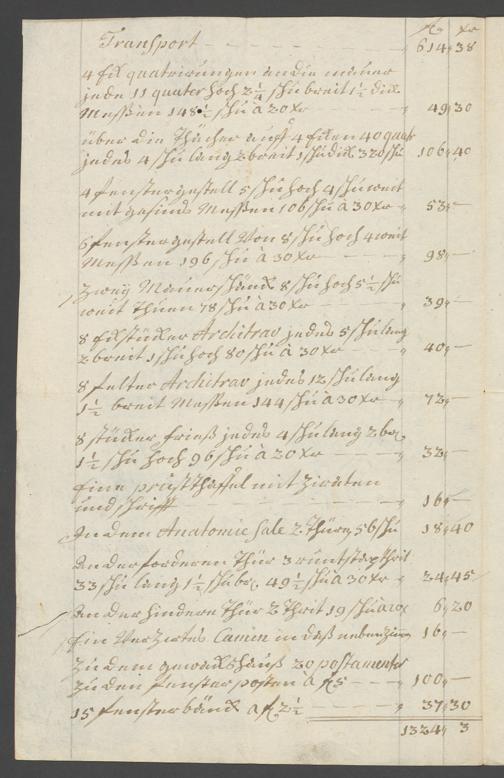 fl xr
Transport 614 38
4 Eck quatrirungen an die mauer
jede 11 quater hoch 2 1/4 schu breit 1 1/2 dick
Messen 148 1/2 schu à 20 xr 49 30
über die Thächer auff 4 Eken 40 quater
jedes 4 schu lang 2 breit 1 schu dick 320 schu 106 40
4 fenstergestell 5 schu hoch 4 schu weit
mit gesims Messen 106 schu à 30 xr 53 —
6 fenstergestell Von 8 schu hoch 4 weit
Messen 196 schu à 30 xr 98 —
Zwey Mauer 8 schu hoch 5 1/2 schu
weit Thuen 78 schu à 30 xr 39 —
8 Ekstücker Architrav jedes 5 schu lang
2 breit 1 schu hoch 80 schu à 30 xr 40 —
8 felter Architrav jedes 12 schu lang
1 1/2 breit Messen 144 schu à 30 xr 72 —
8 stücker frieß jedes 4 schu lang 2 br.
1 1/2 schu hoch 96 schu à 20 xr 32 —
Eine mit Ziraten
und schrifft 16 —
In dem Anatomie Sale 2 Thüren 56 schu 18 40
An der forderen Thür 3
33 schu lang 1 1/2 schu br. 49 1/2 schu à 30 xr 24 45
An der hindern Thür 2 Thrit 19 schu à 20 6 20
Ein Verzirtes Camin in daß nebenzim 16 —
Zu dem gewäckshauß 20 postamenter
Zu den fensterposten à f 5 100 —
15 fensterbänck à f 2 1/2 37 30
1324 3